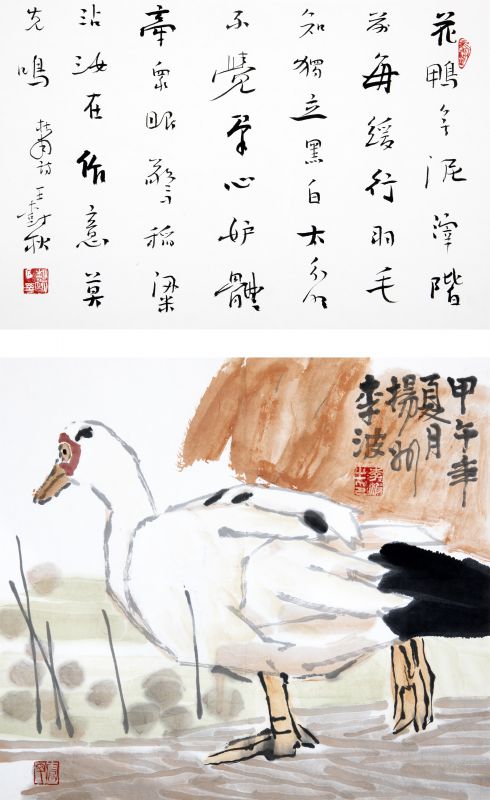 花鴨无泥滓階
前每緩行羽毛
知獨立黑白太分明
不覺羣心妒體
牽衆眼驚稻粱
沾汝在作意莫
先鳴 杜甫詩 王 秋
甲午年
夏月
揚州
李波